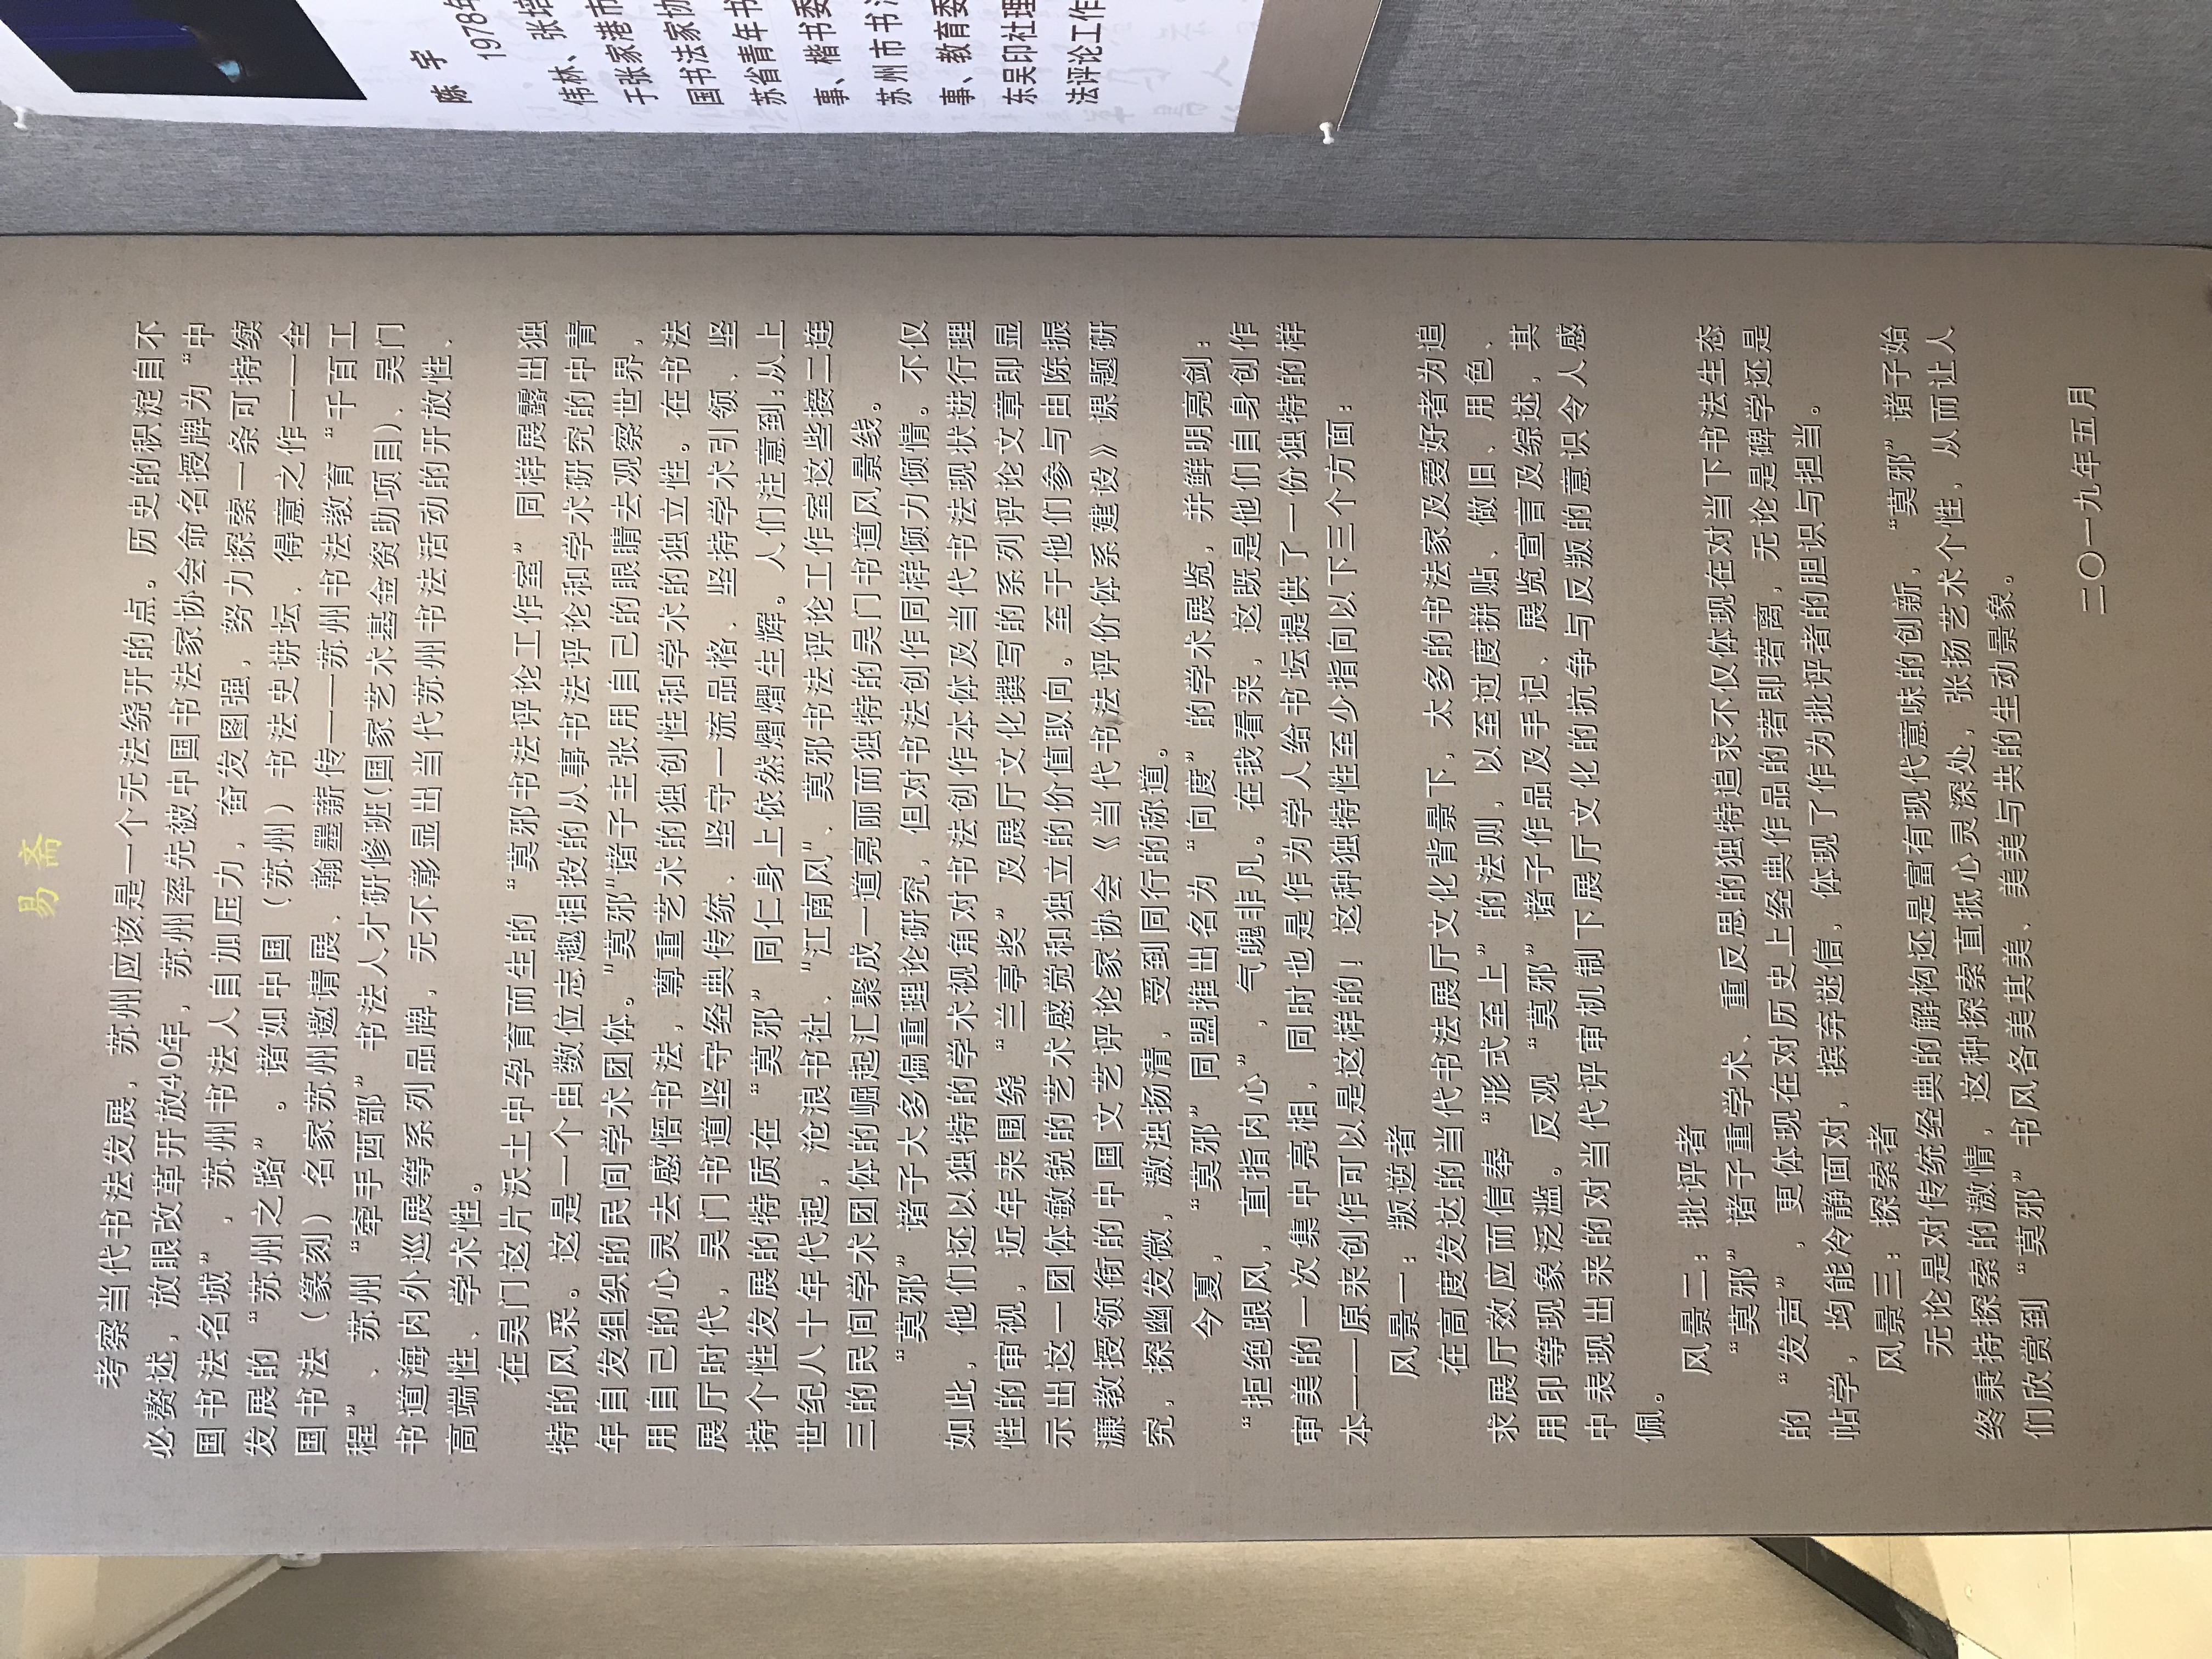 易 斋
考察当代书法发展，苏州应该是一个无法绕开的点。历史的积淀自不
必赘述，放眼改革开放40年，苏州率先被中国书法家协会命名授牌为“中
国书法名城”，苏州书法人自加压力，奋发图强，努力探索一条可持续
发展的“苏州之路”。诸如中国（苏州）书法史讲坛、得意之作——全
国书法（篆刻）名家苏州邀请展、翰墨薪传——苏州书法教育“千百工
程”、苏州“牵手西部”书法人才研修班(国家艺术基金资助项目)、吴门
书道海内外巡展等系列品牌，无不彰显出当代苏州书法活动的开放性、
高端性、学术性。
在吴门这片沃土中孕育而生的“莫邪书法评论工作室”同样展露出独
特的风采。这是一个由数位志趣相投的从事书法评论和学术研究的中青
年自发组织的民间学术团体。“莫邪”诸子主张用自己的眼睛去观察世界，
用自己的心灵去感悟书法，尊重艺术的独创性和学术的独立性。在书法
展厅时代，吴门书道坚守经典传统、坚守一流品格、坚持学术引领、坚
持个性发展的特质在“莫邪”同仁身上依然熠熠生辉。人们注意到:从上
世纪八十年代起，沧浪书社、“江南风”、莫邪书法评论工作室这些接二连
三的民间学术团体的崛起汇聚成一道亮丽而独特的吴门书道风景线。
“莫邪”诸子大多偏重理论研究，但对书法创作同样倾力倾情。不仅
如此，他们还以独特的学术视角对书法创作本体及当代书法现状进行理
性的审视，近年来围绕“兰亭奖”及展厅文化撰写的系列评论文章即显
示出这一团体敏锐的艺术感觉和独立的价值取向。至于他们参与由陈振
濂教授领衔的中国文艺评论家协会《当代书法评价体系建设》课题研
究，探幽发微，激浊扬清，受到同行的称道。
今夏，“莫邪”同盟推出名为“向度”的学术展览，并鲜明亮剑：
“拒绝跟风，直指内心”，气魄非凡。在我看来，这既是他们自身创作
审美的一次集中亮相，同时也是作为学人给书坛提供了一份独特的样
本——原来创作可以是这样的！这种独特性至少指向以下三个方面：
风景一：叛逆者
在高度发达的当代书法展厅文化背景下，太多的书法家及爱好者为追
求展厅效应而信奉“形式至上”的法则，以至过度拼贴、做旧、用色、
用印等现象泛滥。反观“莫邪”诸子作品及手记、展览宣言及综述，其
中表现出来的对当代评审机制下展厅文化的抗争与反叛的意识令人感
佩。
风景二：批评者
“莫邪”诸子重学术、重反思的独特追求不仅体现在对当下书法生态
的“发声”，更体现在对历史上经典作品的若即若离，无论是碑学还是
帖学，均能冷静面对，摈弃迷信，体现了作为批评者的胆识与担当。
风景三：探索者
无论是对传统经典的解构还是富有现代意味的创新，“莫邪”诸子始
终秉持探索的激情，这种探索直抵心灵深处，张扬艺术个性，从而让人
们欣赏到“莫邪”书风各美其美、美美与共的生动景象。
二〇一九年五月
陈 宇
1978年
伟林、张培
于张家港市
国书法家协
苏省青年书
事、楷书委
苏州市书法
事、教育委
东吴印社理
法评论工作